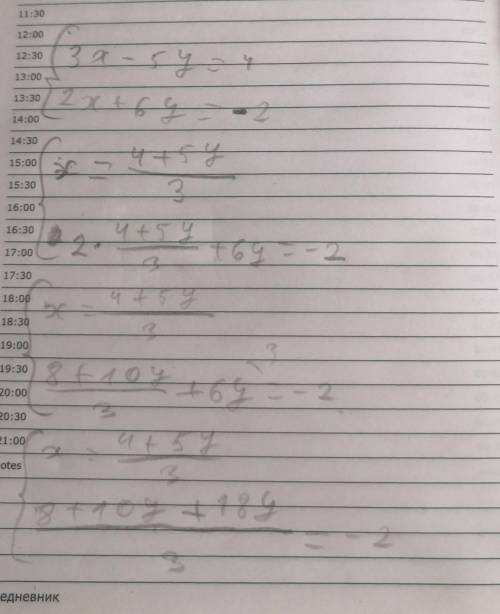 11:30
12:00
3x - 5y = 4
12:30
13:00
2x + 6y = -2
13:30
14:00
14:30
x = (4 + 5y)/3
15:00
15:30
16:00
2 · (4 + 5y)/3 + 6y = -2
16:30
17:00
17:30
x = (4 + 5y)/3
18:00
18:30
19:00
(8 + 10y)/3 + 6y\3 = -2
19:30
20:00
20:30
x = (4 + 5y)/3
21:00
otes
(8 + 10y + 18y)/3 = -2
едневник